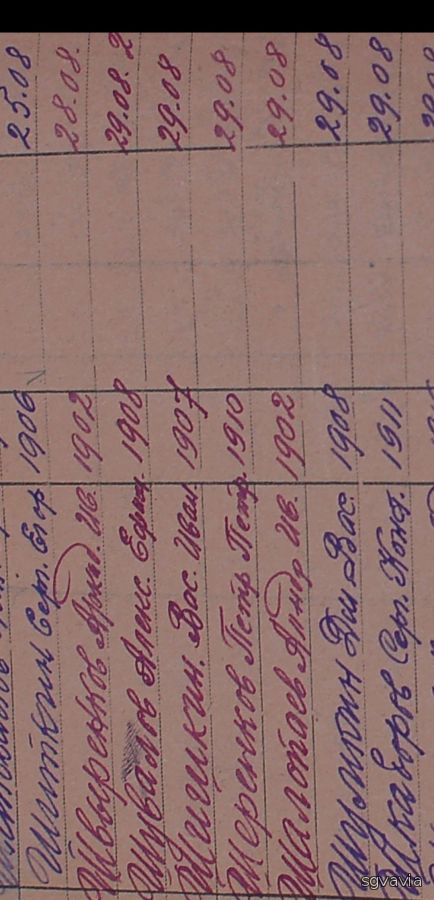 25.08
Шиткин Серг. Егор 1906 28.08.
Швыренков Аркад. Ив. 1902 29.08.2
Шувалов Алекс. Ефим. 1908 29.08
Шишкин. Вас. Иван. 1907 29.08
Шеренков Петр Петр. 1910 29.08
Шалопаев Ив. 1902 29.08
Шурикин Дм. Вас. 1908 29.08
Шкаворов Серг. Конст. 1911
sgvavia